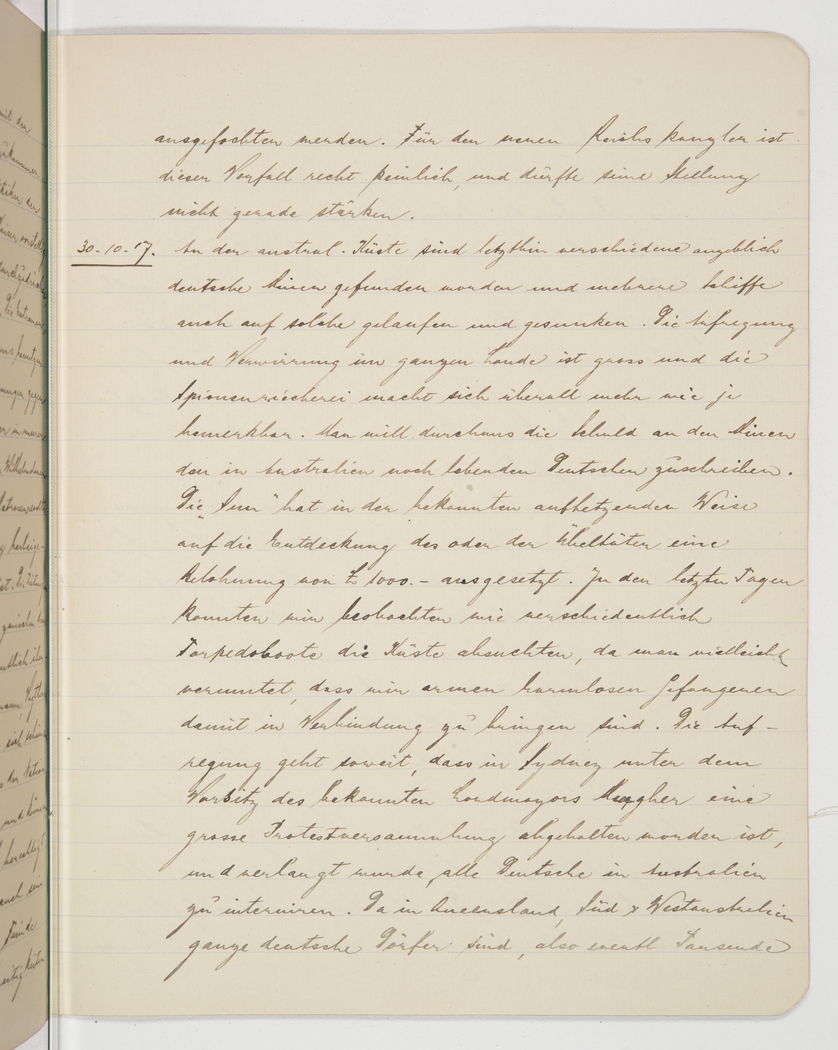 ausgefochten werden. Für den neuen Reichskanzler ist
dieser Vorfall recht peinlich, und dürfte seine Stellung
nicht gerade stärken.
30-10-17. An der austral. Küste sind letzthin verschiedene angeblich
deutsche Minen gefunden worden und mehrere Schiffe
auch auf solche gelaufen und gesunken. Die Aufregung
und Verwirrung im ganzen Lande ist gross und die
Spionenriecherei macht sich überall mehr wie je
bemerkbar. Man will durchaus die Schuld an den Minen
den in Australien noch lebenden Deutschen zuschreiben.
Die "Sun" hat in der bekannten aufhetzenden Weise
auf die Entdeckung des oder der Übeltäter eine
Belohnung von £ 1000.- ausgesetzt. In den letzten Tagen
konnten wir beobachten wie verschiedentlich
Torpedoboote die Küste absuchten, da man vielleicht
vermutet, dass wir armen harmlosen Gefangenen
damit in Verbindung zu bringen sind. Die Auf-
regung geht soweit, dass in Sydney unter dem
Vorsitz des bekannten Lordmayors Meagher eine
grosse Protestversammlung abgehalten worden ist,
und verlangt wurde, alle Deutsche in Australien
zu internieren. Da in Queensland, Süd & Westaustralien
ganze deutsche Dörfer sind, also eventl Tausende